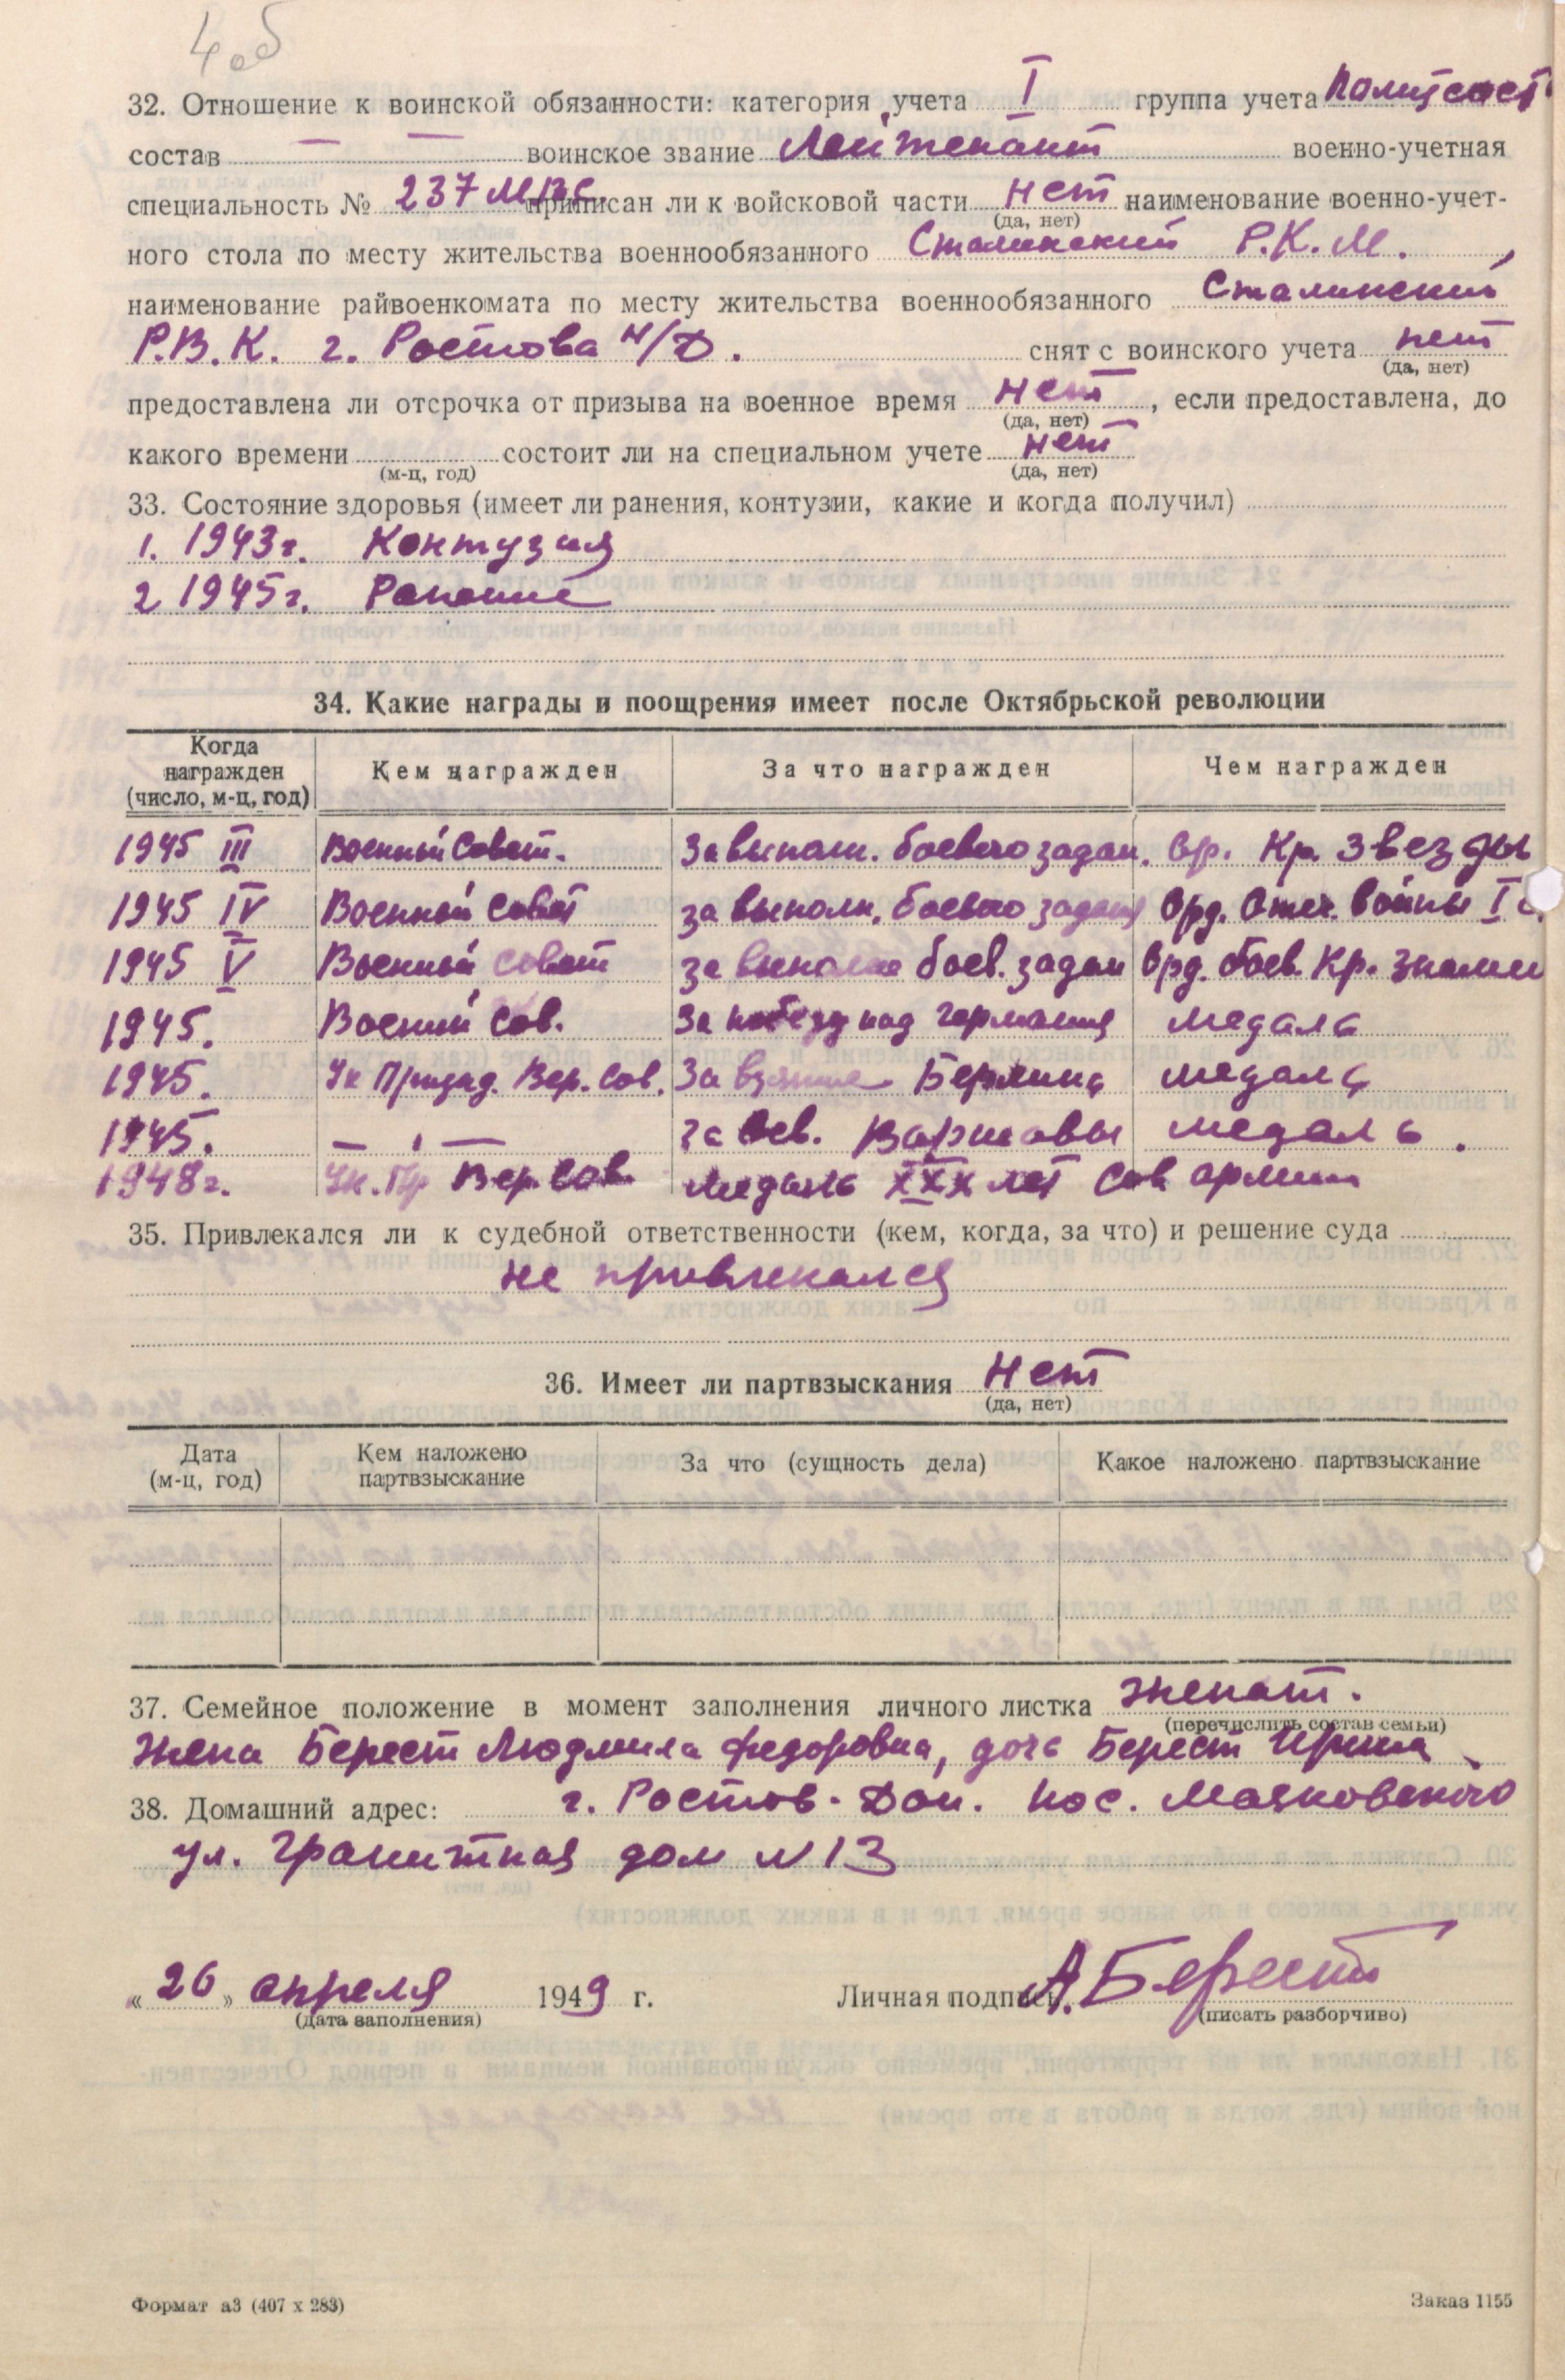 4об
32. Отношение к воинской обязанности: категория учета I группа учета Политсост.
состав — — воинское звание Лейтенант военно-учетная
специальность № 237 приписан ли к войсковой части нет наименование военно-учет-
(да, нет)
ного стола по месту жительства военнообязанного Сталинский Р.К.М.,
наименование райвоенкомата по месту жительства военнообязанного Сталинский
Р.В.К. г. Ростова н/Д. снят с воинского учета нет
(да, нет)
предоставлена ли отсрочка от призыва на военное время нет, если предоставлена, до
(да, нет)
какого времени состоит ли на специальном учете нет
(м-ц, год) (да, нет)
33. Состояние здоровья (имеет ли ранения, контузии, какие и когда получил)
1. 1943г. Контузия
2 1945г. Ранение
34. Какие награды и поощрения имеет после Октябрьской революции
Когда награжден (число, м-ц, год) Кем награжден За что награжден Чем награжден
1945 III Военный Совет. За выполн. боевого задан. Ор. Кр. Звезды
1945 IV Военный совет за выполн. боевого задания Орд. Отеч. войны I с.
1945 V Военный совет за выполне боев. задан Орд. боев. Кр. знамен
1945. Военный Сов. За победу над Германия медаль
1945. Ук Призид. Вер. Сов. За взятие Берлина медаль
1945. — " — за Осв. Варшавы медаль.
1948г. Ук. Пр Вер. Сов. медаль XXX лет Сов армии
35. Привлекался ли к судебной ответственности (кем, когда, за что) и решение суда
не привлекался
36. Имеет ли партвзыскания Нет
(да, нет)
Дата (м-ц, год) Кем наложено партвзыскание За что (сущность дела) Какое наложено партвзыскание
37. Семейное положение в момент заполнения личного листка женат.
(перечислить состав семьи)
Жена Берест Людмила Федоровна, дочь Берест Ирина
38. Домашний адрес: г. Ростов-Дон. пос. Маяковского
ул. Гранитная дом № 13
« 26 » апреля 1949 г. Личная подпись А. Берест
(дата заполнения) (писать разборчиво)
Формат а3 (407 х 283) Заказ 1155